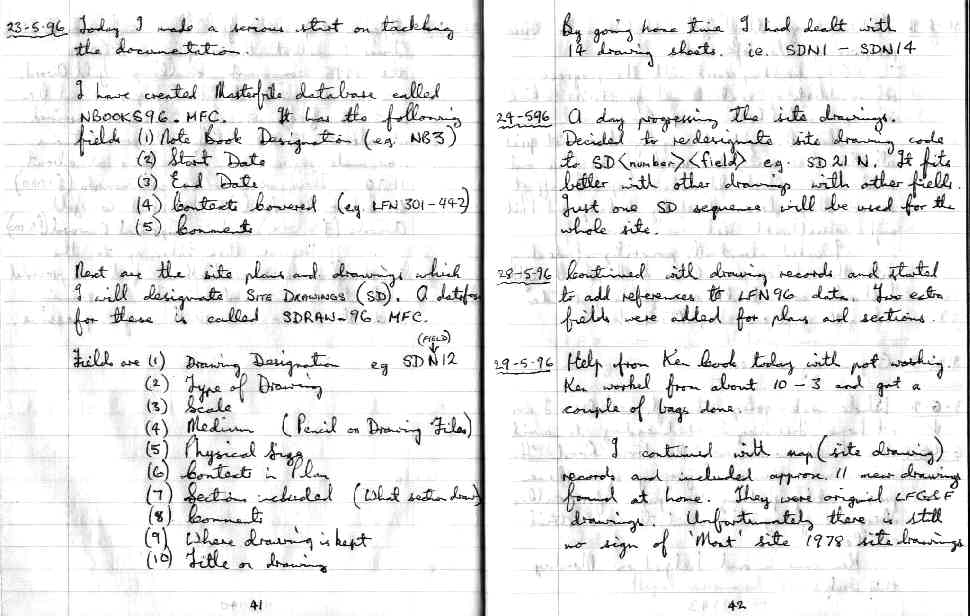 23-5-96 Today I made a serious start on tackling
the documentation.
I have created Masterfile database called
NBOOKS96.MFC. It has the following
fields (1) Note Book Designation (eg. NB3)
(2) Start Date
(3) End Date
(4) Contexts Covered (eg. LFN 301-442)
(5) Comments
Next are the site plans and drawings which
I will designate SITE DRAWINGS (SD). A datafile
for these is called SDRAW-96.MFC.
(FIELD)
Fields are (1) Drawing Designation eg SDN12
(2) Type of Drawing
(3) Scale
(4) Medium (Pencil on Drawing Film)
(5) Physical Size
(6) Contexts in Plan
(7) Sections included (What section draw)
(8) Comments
(9) Where drawing is kept
(10) Title on drawing
41
By going home time I had dealt with
14 drawing sheets. ie. SDN1 - SDN14
24-596 A day progressing the site drawings.
Decided to redesignate site drawing code
to SD<number><field> eg. SD21N. It fits
better with other drawings with other fields.
Just one SD sequence will be used for the
whole site.
28-5-96 Continued with drawing records and started
to add references to LFN96 data. Two extra
fields were added for plans and sections.
29-5-96 Help from Ken Cook today with pot washing.
Ken worked from about 10-3 and got a
couple of bags done.
I continued with map (site drawing)
records and included approx. 11 new drawings
found at home. They were original LFG&F
drawings. Unfortunately there is still
no sign of 'Moat' site 1978 site drawings
42